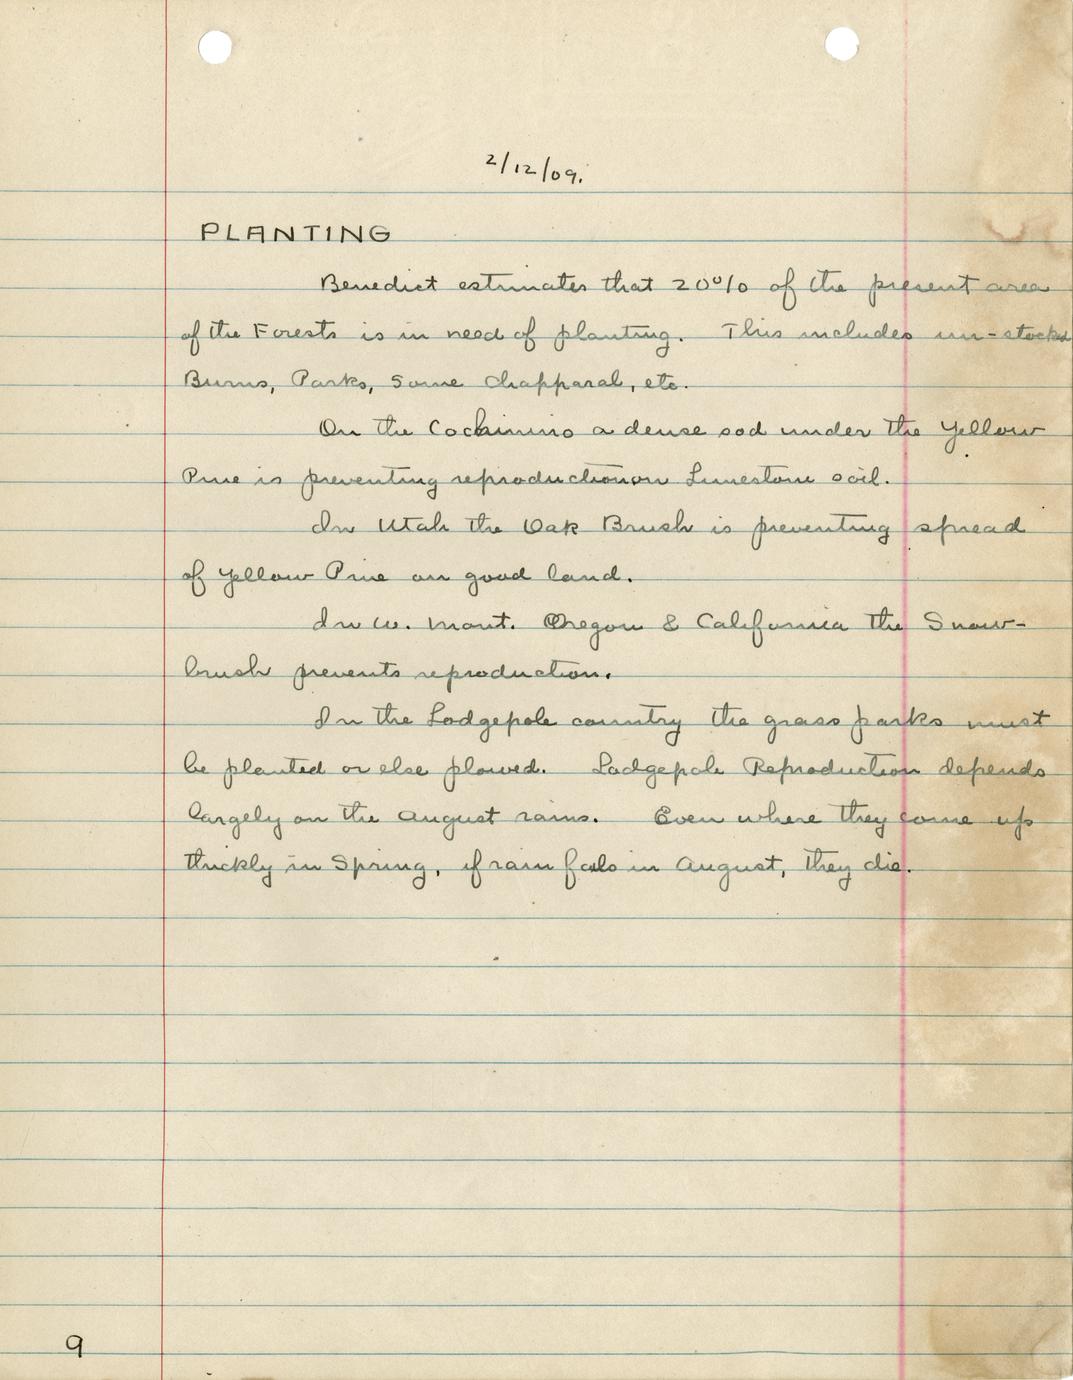 2/12/09.
PLANTING
Benedict estimates that 20% of the present area
of the Forests is in need of planting. This includes un-stocked
Burns, Parks, some chapparal, etc.
On the Cochinino a dense sod under the Yellow
Pine is preventing reproduction on Limestone soil.
In Utah the Oak Brush is preventing spread
of Yellow Pine on good land.
In W. Mont. Oregon & California the Snow-
brush prevents reproduction.
In the Lodgepole country the grass parks must
be planted or else plowed. Lodgepole Reproduction depends
largely on the August rains. Even where they come up
thickly in Spring, if rain fails in August, they die.
9